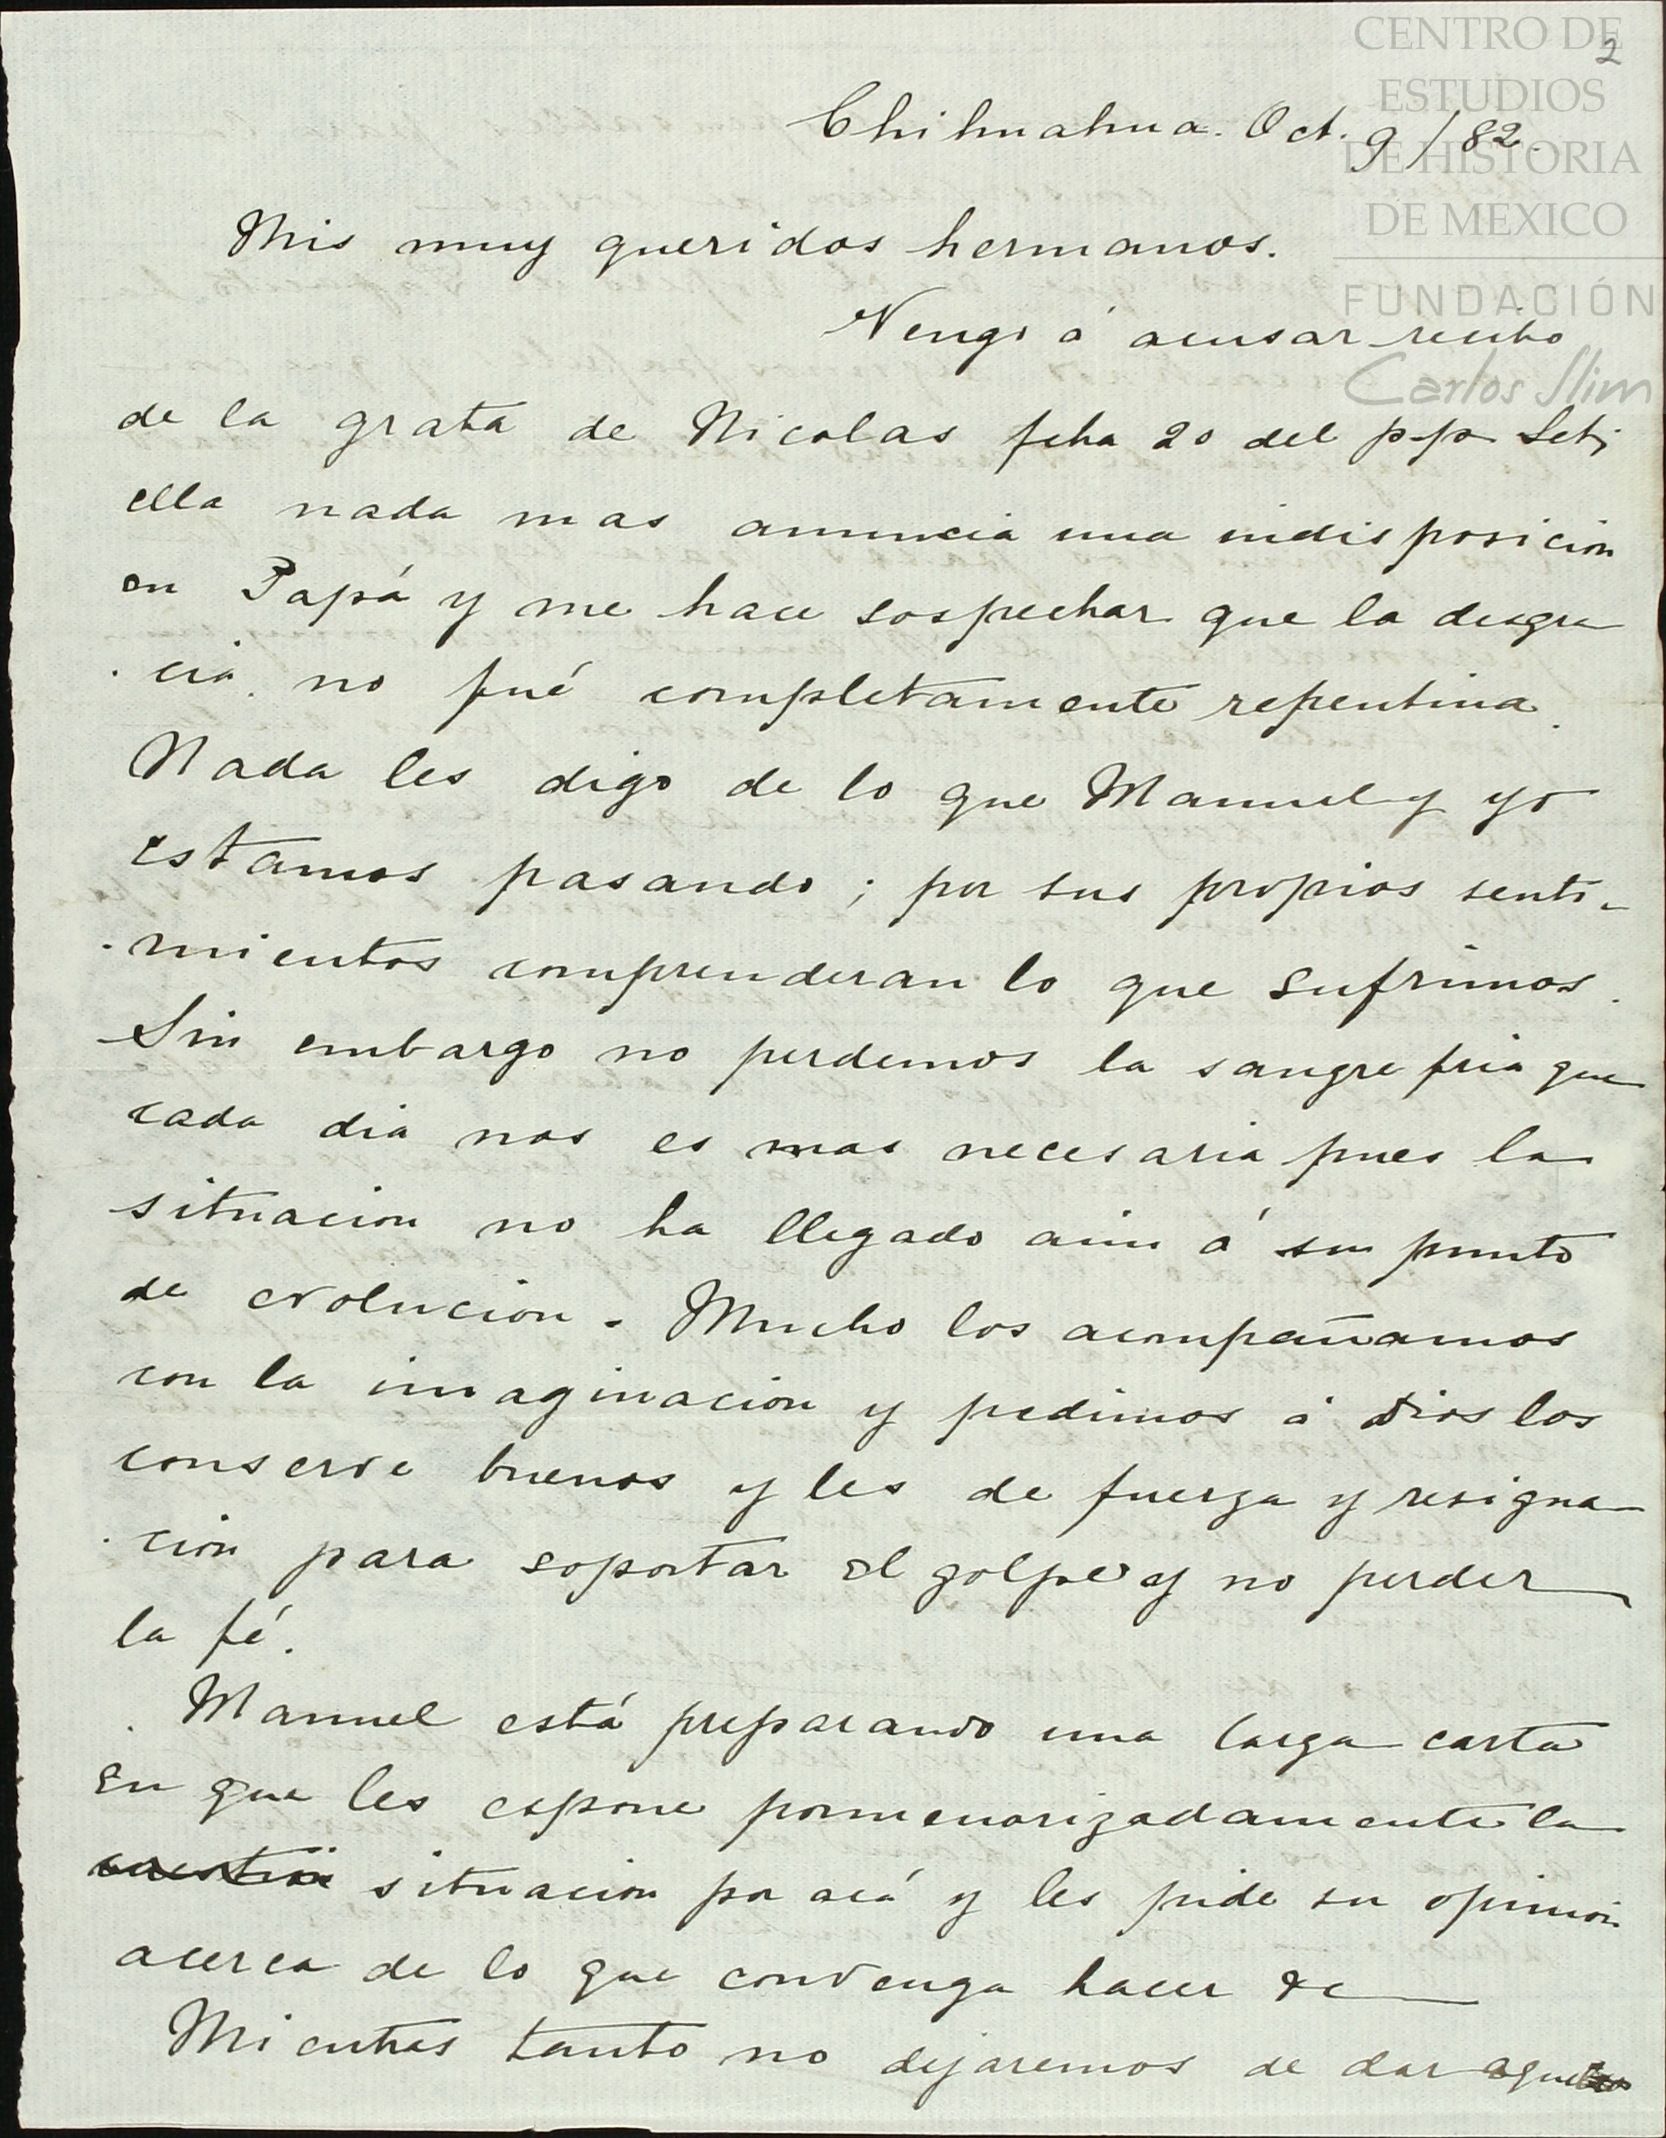 CENTRO DE
ESTUDIOS
DE HISTORIA
DE MEXICO
FUNDACIÓN
Carlos Slim
2
Chihuahua. Oct. 9/82.
Mis muy queridos hermanos.
Vengo á acusar recibo
de la grata de Nicolas fcha 20 del p.p. Set;
ella nada mas anuncia una indisposicion
en Papá y me hace sospechar que la desgra
cia no fué completamente repentina.
Nada les digo de lo que Manuel y yo
estamos pasando; por sus propios senti-
-mientos comprenderan lo que sufrimos.
Sin embargo no perdemos la sangre fria que
cada dia nos es mas necesaria pues la
situacion no ha llegado aun á su punto
de evolucion. Mucho los acompañamos
con la imaginacion y pedimos á Dios los
conserve buenos y les de fuerza y resigna
cion para soportar el golpe y no perder
la fé.
Manuel está preparando una larga carta
en que les espone pormenorizadamente la
cuestion situacion por acá y les pide su opinion
acerca de lo que convenga hacer &c
Mientras tanto no dejaremos de dar